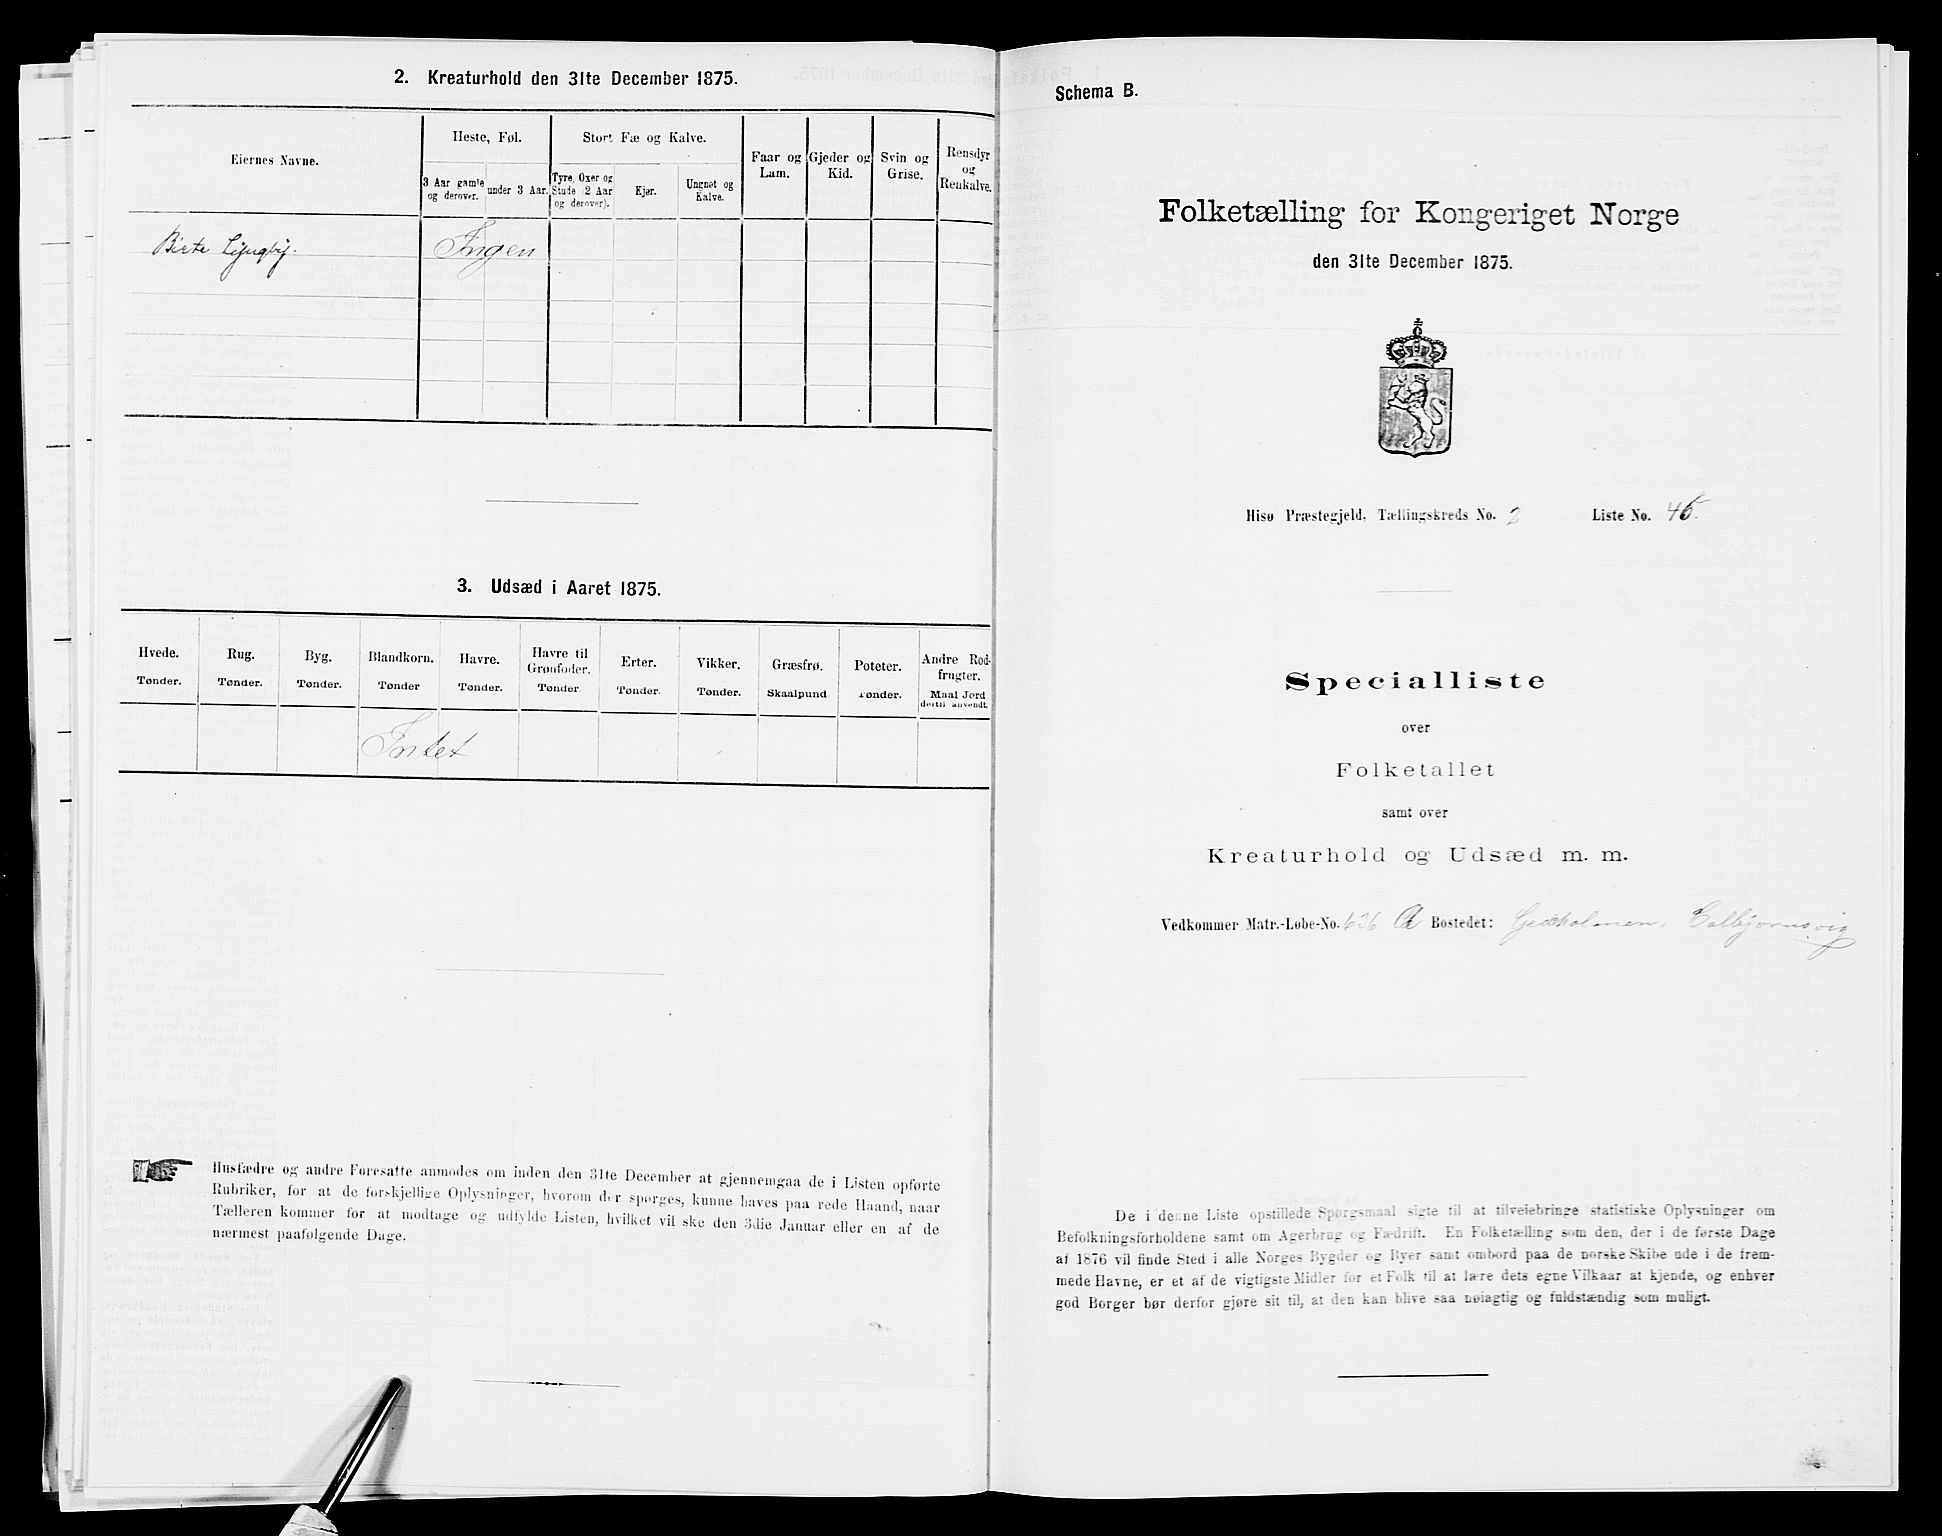 2. Kreaturhold den 31te December 1875.
Eiernes Navne.
Heste, Føl.
Stort Fæ og Kalve.
Faar og
Lam.
Gjeder og
Kid.
Svin og
Grise.
Rensdyr
og
Renkalve.
3 Aar gamle
og derover.
under 3 Aar.
Tyre, Oxer og
Stude (2 Aar
og derover).
Kjør.
Ungnet og
Kalve.
Birte Ljungby. Ingen
3. Udsæd i Aaret 1875.
Hvede.
Tønder.
Rug.
Tønder.
Byg.
Tønder.
Blandkorn.
Tønder
Havre.
Tønder.
Havre til
Grønfoder.
Tønder
Erter.
Tønder.
Vikker.
Tønder.
Græsfrø.
Skaalpund
Poteter.
Tønder.
Andre Rod-
frugter.
Maal Jord
dertil anvendt.
Intet
Husfædre og andre Foresatte anmodes om inden den 31te December at gjennemgaa de i Listen opførte
Rubriker, for at de forskjellige Oplysninger, hvorom der spørges, kunne haves paa rede Haand, naar
Tælleren kommer for at modtage og udfylde Listen, hvilket vil ske den 3die Januar eller en af de
nærmest paafølgende Dage.
Schema B.
Folketælling for Kongeriget Norge
den 31te December 1875.
Hisø Præstegjeld, Tællingskreds No. 2 Liste No. 45.
Specialliste
over
Folketallet
samt over
Kreaturhold og Udsæd m. m.
Vedkommer Matr.-Løbe-No. 636 a Bostedet: Gedeholmen, Colbjørnsvig
De i denne Liste opstillede Spørgsmaal sigte til at tilveiebringe statistiske Oplysninger om
Befolkningsforholdene samt om Agerbrug og Fædrift. En Folketælling som den, der i de første Dage
af 1876 vil finde Sted i alle Norges Bygder og Byer samt ombord paa de norske Skibe ude i de frem-
mede Havne, er et af de vigtigste Midler for et Folk til at lære dets egne Vilkaar at kjende, og enhver
god Borger bør derfor gjøre sit til, at den kan blive saa nøiagtig og fuldstændig som muligt.